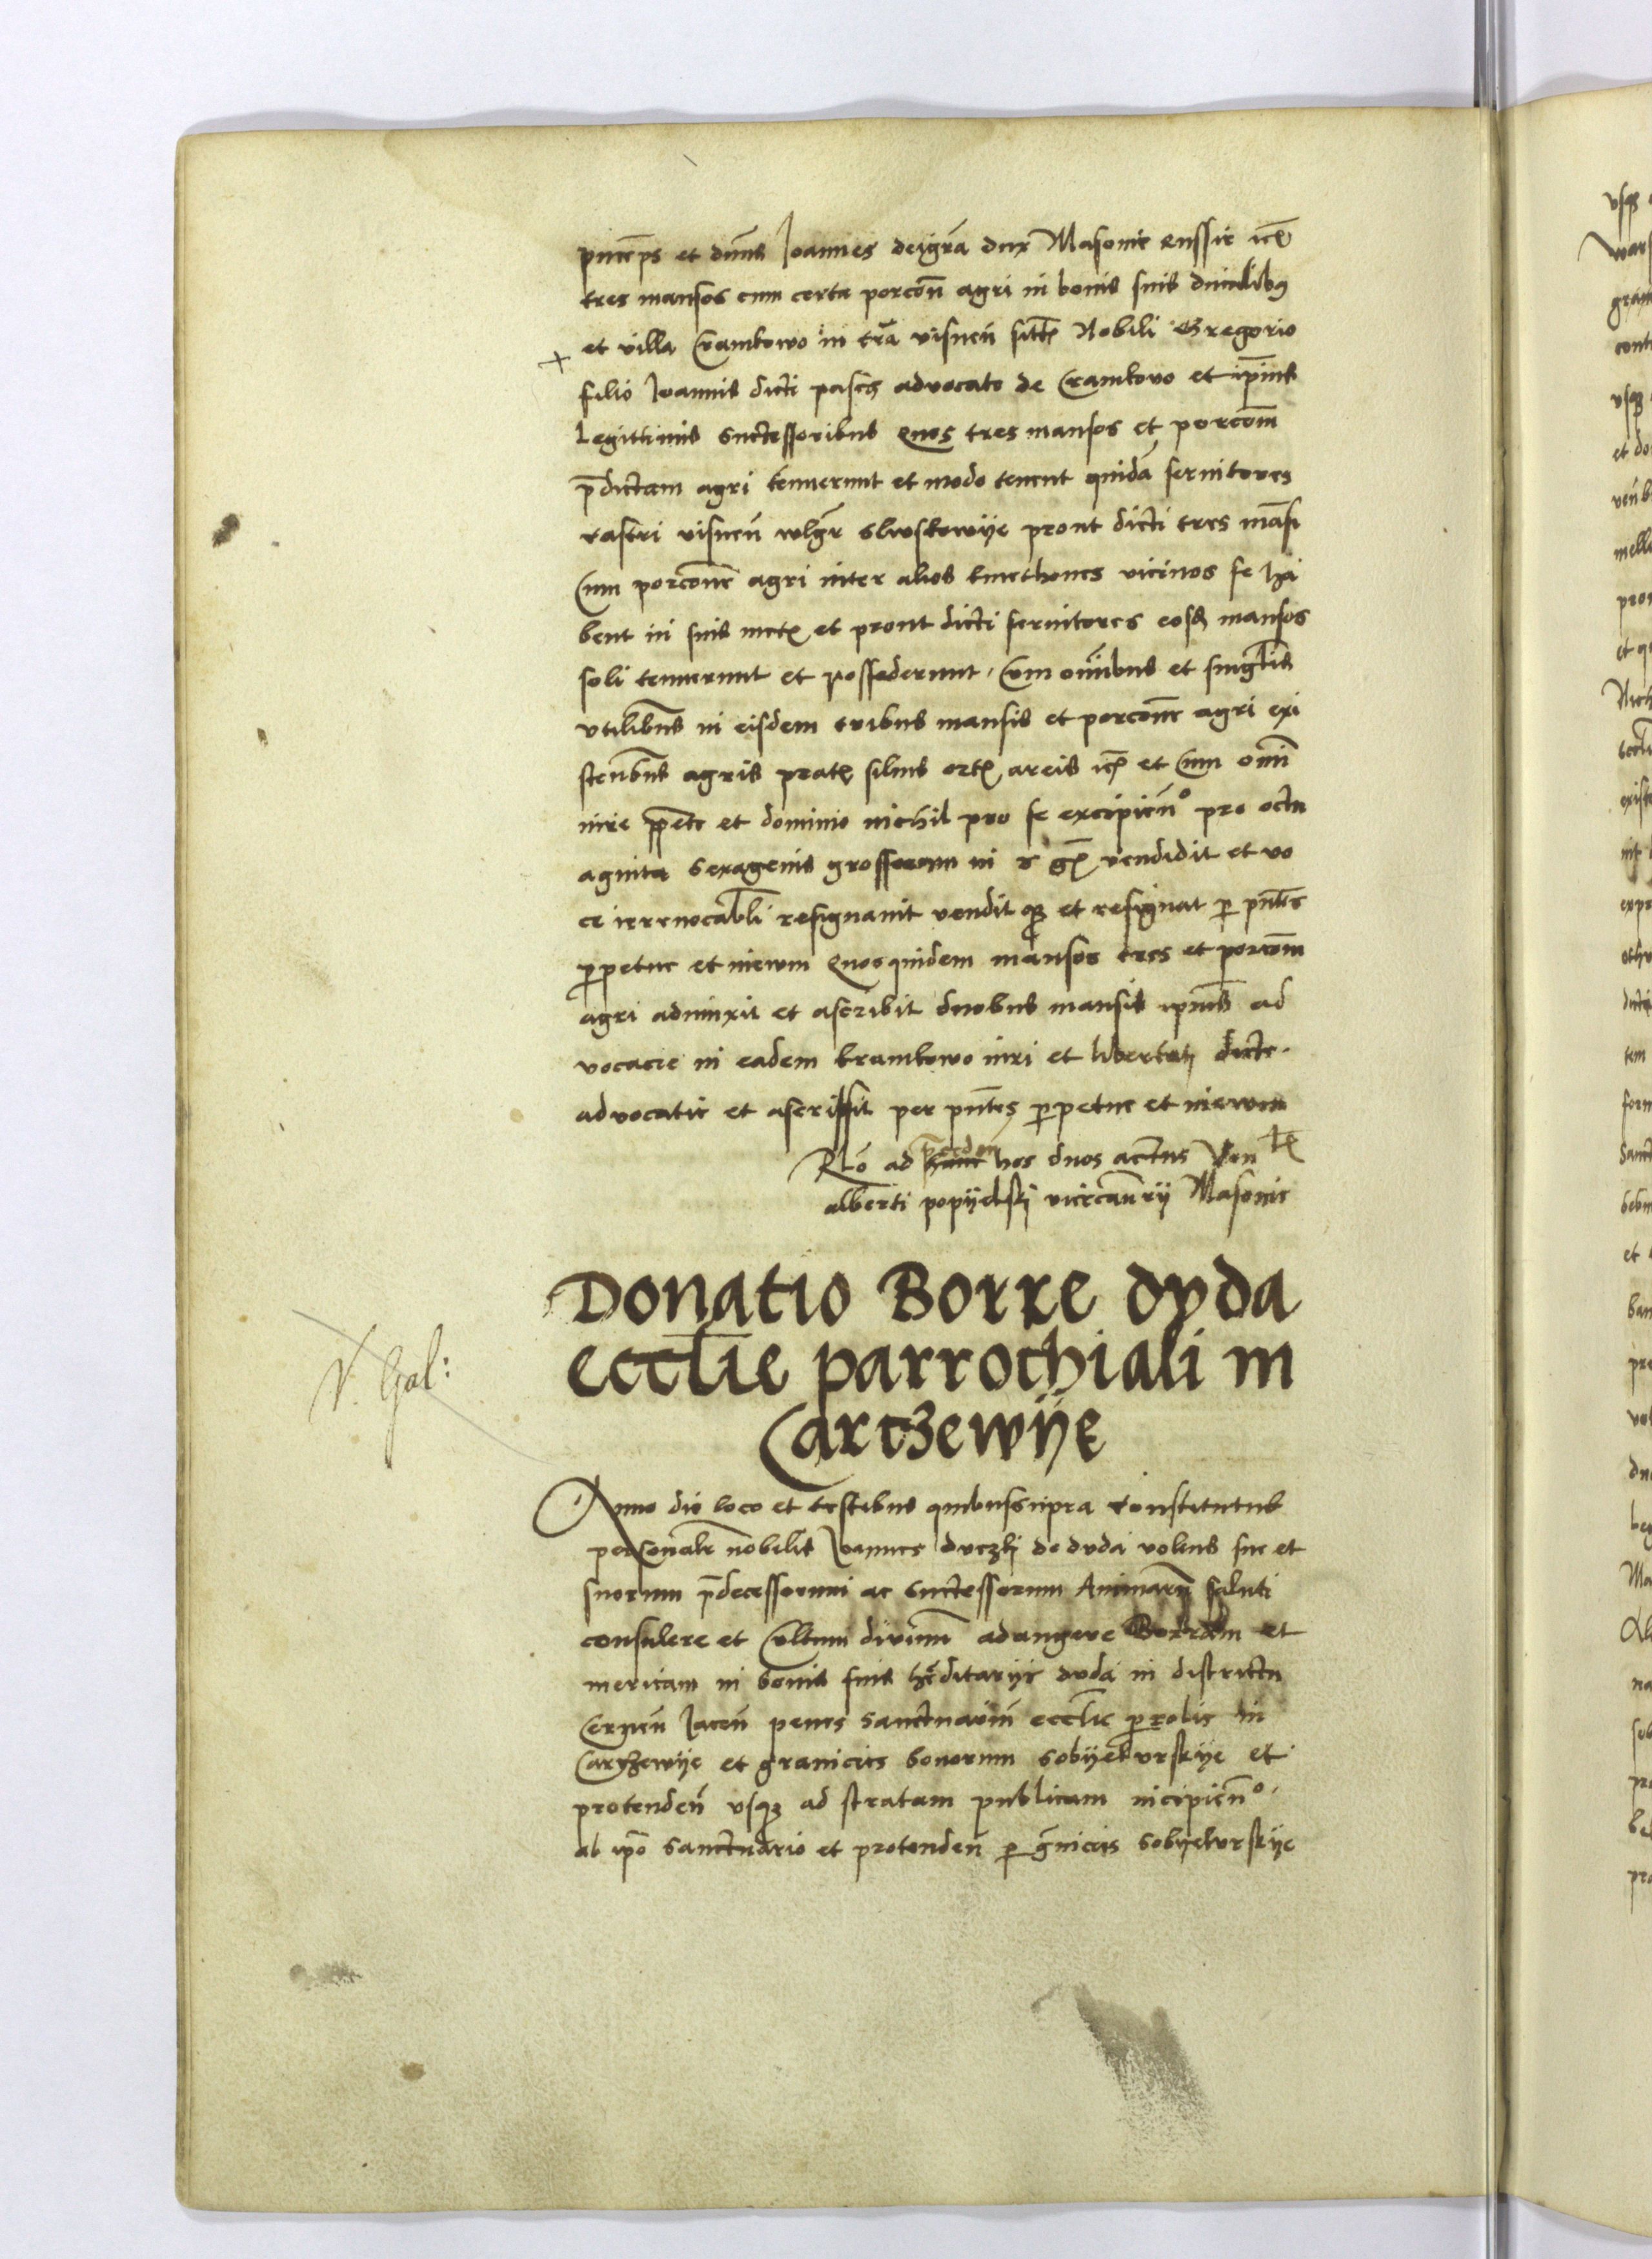 princeps et dnus Joannes dei gra dux Masouie Russie etc
tres mansos cum certa porcon agri in bonis suis ducalibus
et villa Cramkowo in tra visnen sitt Nobili Gregorio
filio Joannis dicti pasch advocato de Cramkowo et ipius
Legittimis Successoribus Quos tres mansos et porcom
pdictam agri tenuerunt et modo tenent quida seruitores
castri visnen wlgr Slwskowije prout dicti tres masi
Cum porcone agri inter alios kmethones vicinos se ha
bent in suis met et prout dicti seruitores eosd mansos
soli tenuerunt et possederunt. Cum omibus et singlis
vtilibus in eisdem tribus mansis et porcone agri exi
sten bus agris prat siluis ort areis etc et Cum omi
iure ppete et dominio nichil pro se excipien pro octu
aginta Sexagenis grossorum in vendidit et vo
ce irreuocabli resignauit vendit que et resignat p pntes
ppetue et in ewm Quosquidem mansos tres et porcom
agri adiunxit et ascribit duobus mansis ipius ad
vocacie in eadem kramkowo iuri et libertati dicte.
advocatie et ascribit per pntes ppetue et in ewm
Rlo ad hos duos actus Ven
alberti popijelski vicecancrij Masouie
Donatio Borre dyda
ecclie parrochiali in
Cartzewije
V. Gal:
Anno die loco et testibus quibus supra Constitutus
personalr nobilis Joannes duczki de duda volens sue et
suorum pdecessorum ac Successorum Animaru saluti
consulere et Cultum diuinu adaugere Borram et
mericam in bonis suis hereditarijs duda in districtu
Cernen Jacen penes Sanctuariu ecclie prolis in
Cartzewije et granicies bonorum Sobijekurskije et
protenden vsque ad stratam publicam incipien
ab ipo Sanctuario et protenden p gnicies Sobijekurskije